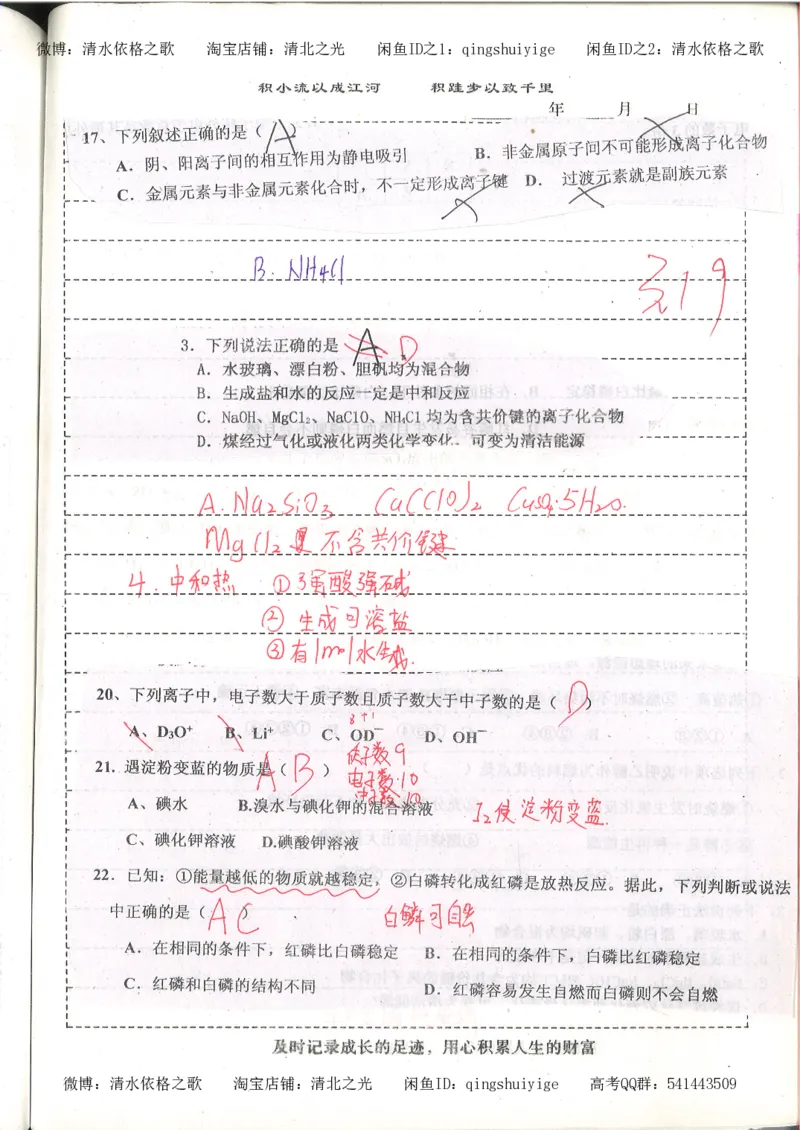 微博：清水依格之歌 淘宝店铺：清北之光 闲鱼ID之1：qingshuiyige 闲鱼ID之2：清水依格之歌
积小流以成江河 积跬步以致千里
年 月 日
17、下列叙述正确的是（ A ）
A．阴、阳离子间的相互作用为静电吸引 B．非金属原子间不可能形成离子化合物
C．金属元素与非金属元素化合时，不一定形成离子键 D． 过渡元素就是副族元素
B. NH4Cl
3．下列说法正确的是 A D
A．水玻璃、漂白粉、胆矾均为混合物
B．生成盐和水的反应一定是中和反应
C．NaOH、MgCl₂、NaClO、NH₄Cl 均为含共价键的离子化合物
D．煤经过气化或液化两类化学变化，可变为清洁能源
A. Na2SiO3 Ca(ClO)2 CuSO4·5H2O.
MgCl2 不含共价键
4. 中和热 ①强酸强碱
②生成可溶盐
③有1mol水生成.
20、下列离子中，电子数大于质子数且质子数大于中子数的是（ D ）
A、D₃O⁺ B、Li⁺ C、OD⁻ D、OH⁻
质子数 9
21、遇淀粉变蓝的物质是（ AB ） 电子数·10
中子数·10
A、碘水 B.溴水与碘化钾的混合溶液 I2使淀粉变蓝
C、碘化钾溶液 D.碘酸钾溶液
22．已知：①能量越低的物质就越稳定，②白磷转化成红磷是放热反应。据此，下列判断或说法
中正确的是（ AC ） 白鳞可自燃
A．在相同的条件下，红磷比白磷稳定 B．在相同的条件下，白磷比红磷稳定
C．红磷和白磷的结构不同 D．红磷容易发生自燃而白磷则不会自燃
及时记录成长的足迹，用心积累人生的财富
微博：清水依格之歌 淘宝店铺：清北之光 闲鱼ID：qingshuiyige 高考QQ群：541443509